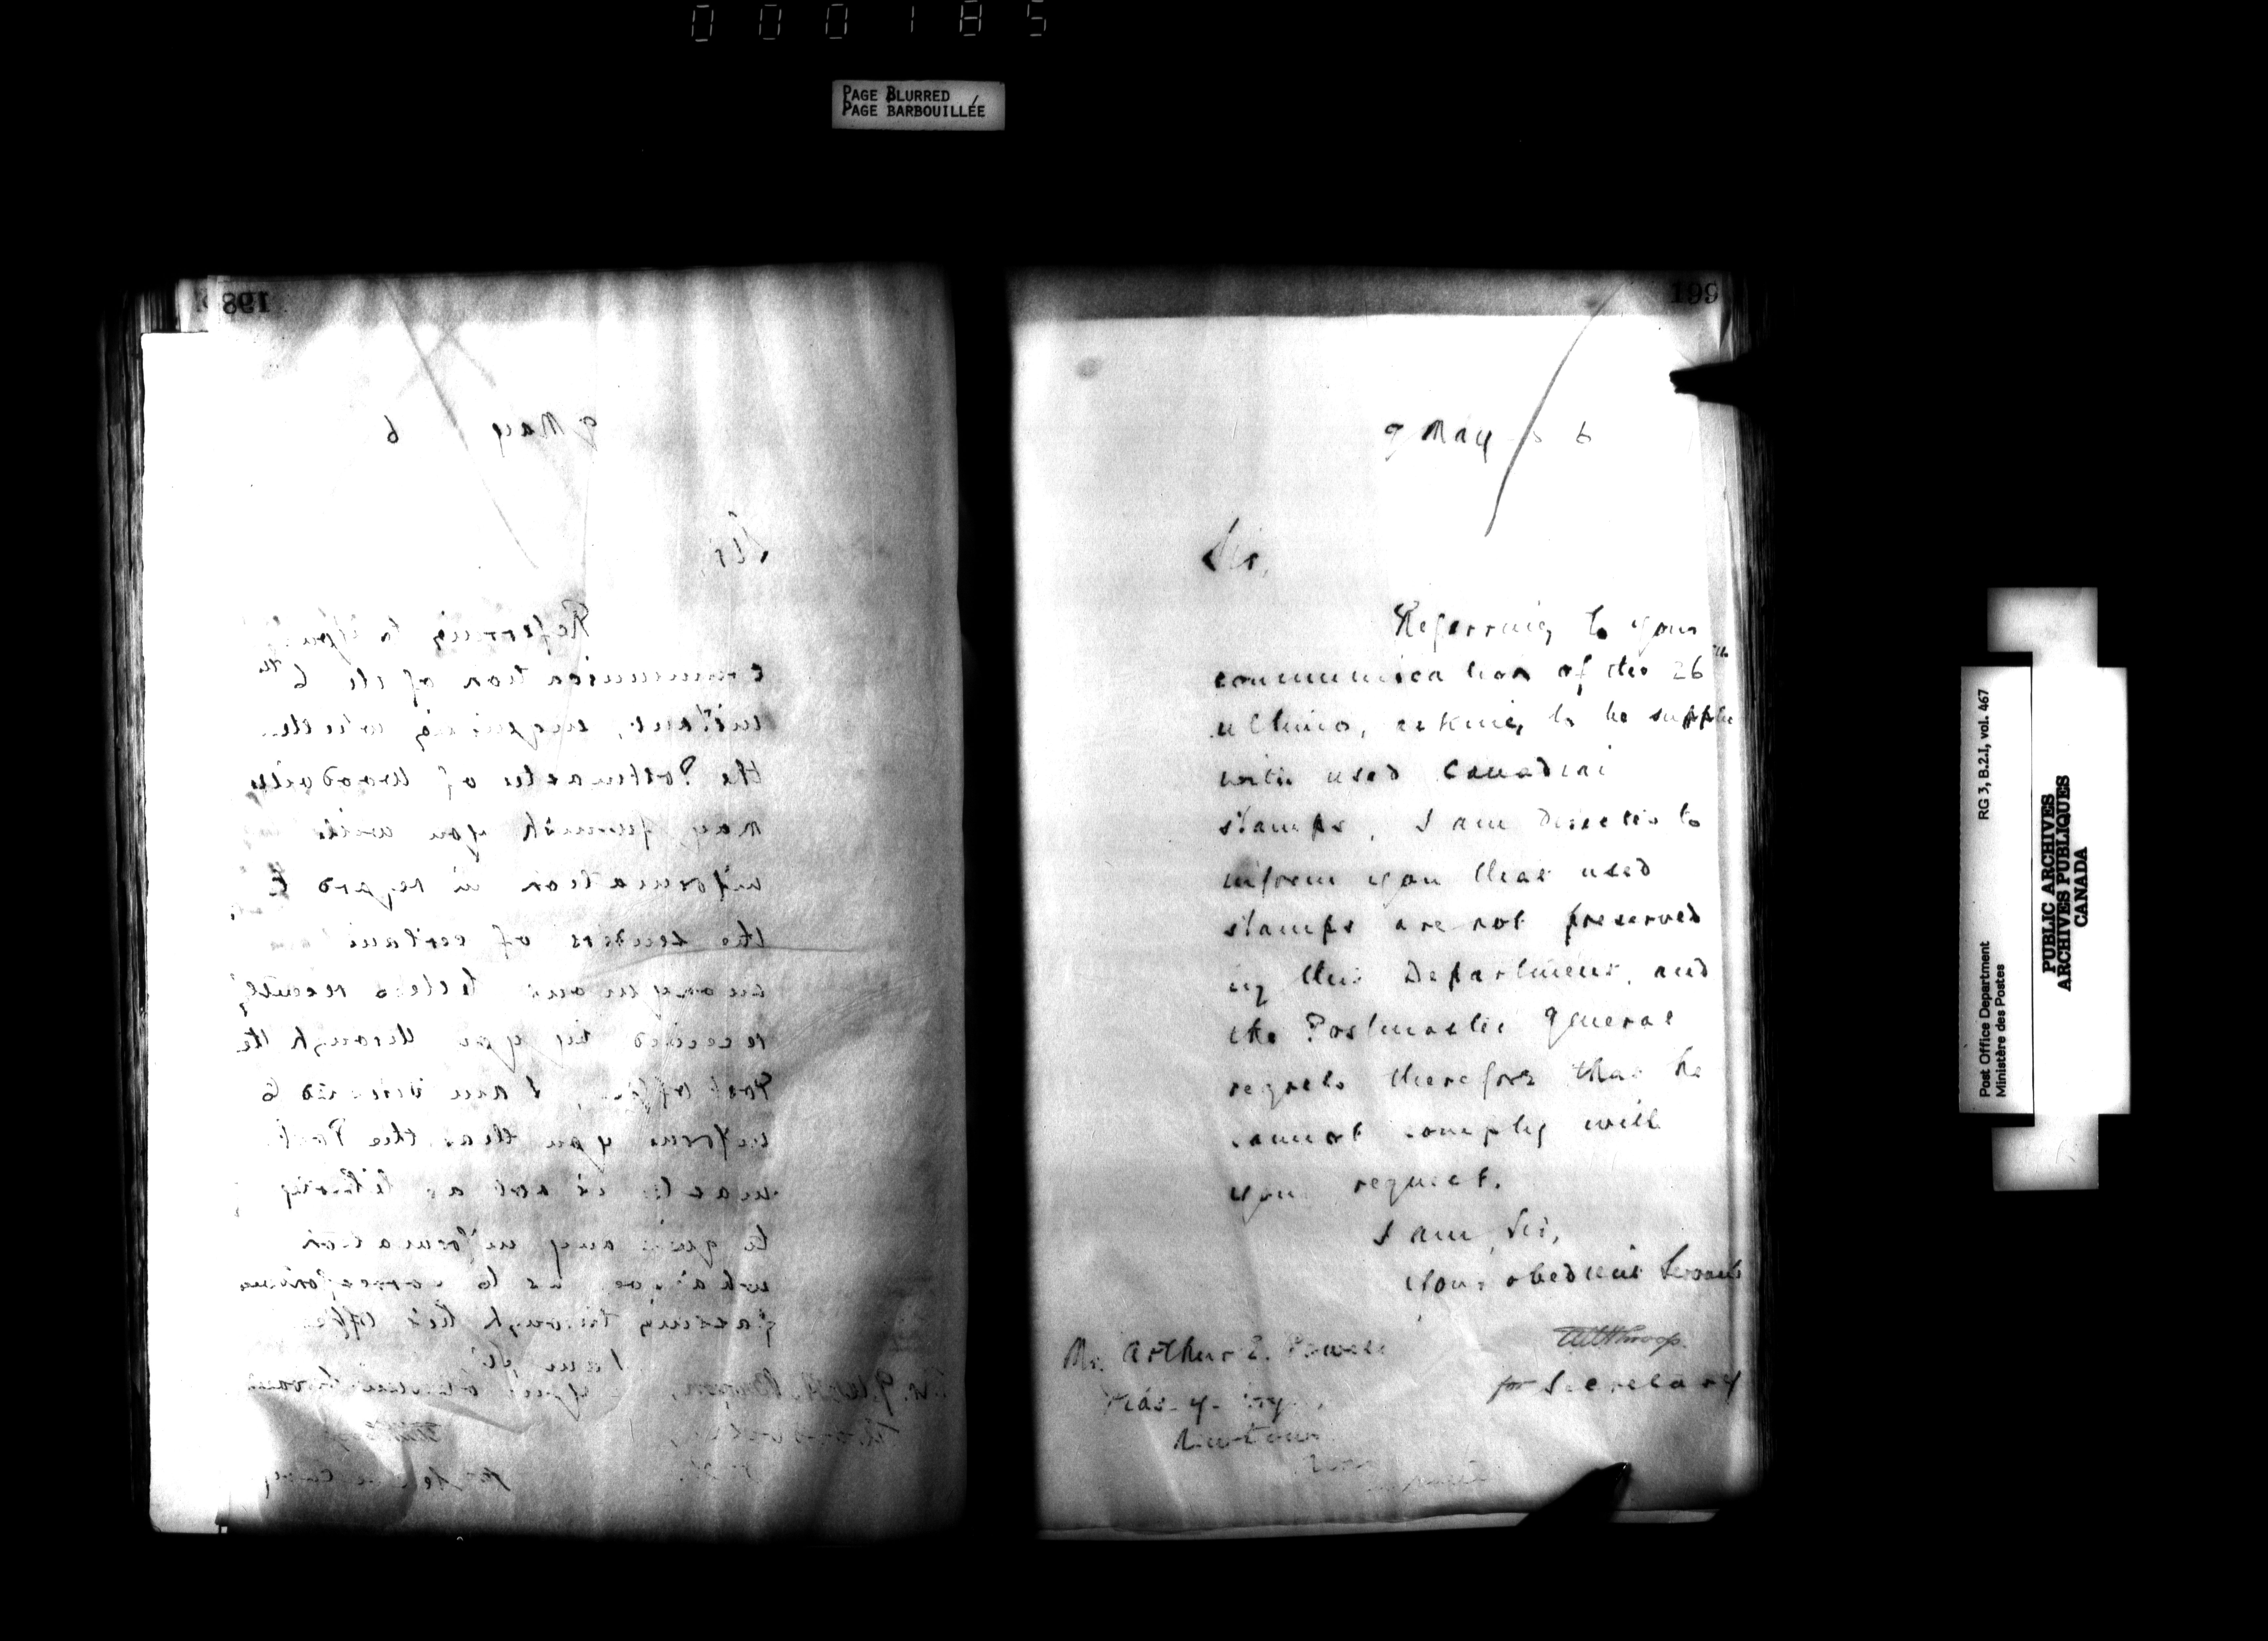 000185
PAGE BLURRED
PAGE BARBOUILLÉE
198
9 May 6
Sir,
Referring to your
communication of the 6th
instant, enquiring whether
the Postmaster of Woodville
may furnish you with
information in regard to
the senders of certain
anonymous letters recently
received by you through the
Post office, I am directed to
inform you that the Post
master is not at liberty
to give any information
whatever as to correspondence
passing through his office
I am, Sir,
Your obedient Servant
for Secretary
199
9 May 6
Sir,
Referring to your
communication of the 26th
ultimo, asking to be supplied
with used Canadian
stamps, I am directed to
inform you that used
stamps are not preserved
by this Department, and
the Postmaster General
regrets therefore that he
cannot comply with
your request.
I am, Sir,
Your obedient Servant
Mr. Arthur E. Powell
for Secretary
Newtown
RG 3, B.2.1, vol. 467
Post Office Department
Ministère des Postes
PUBLIC ARCHIVES
ARCHIVES PUBLIQUES
CANADA